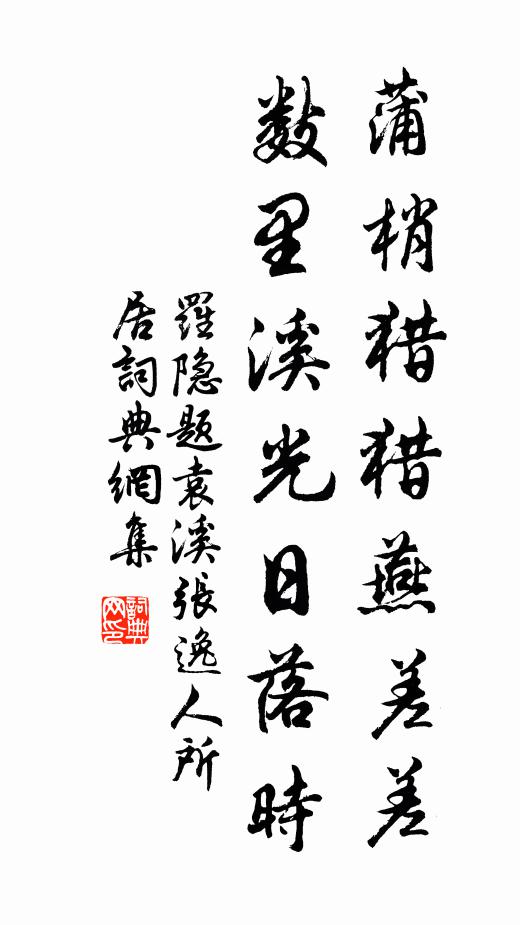 蒲梢猎猎燕差差
数里溪光日落時
羅隐题袁溪張逸人所
居詞典網集
詞典網印